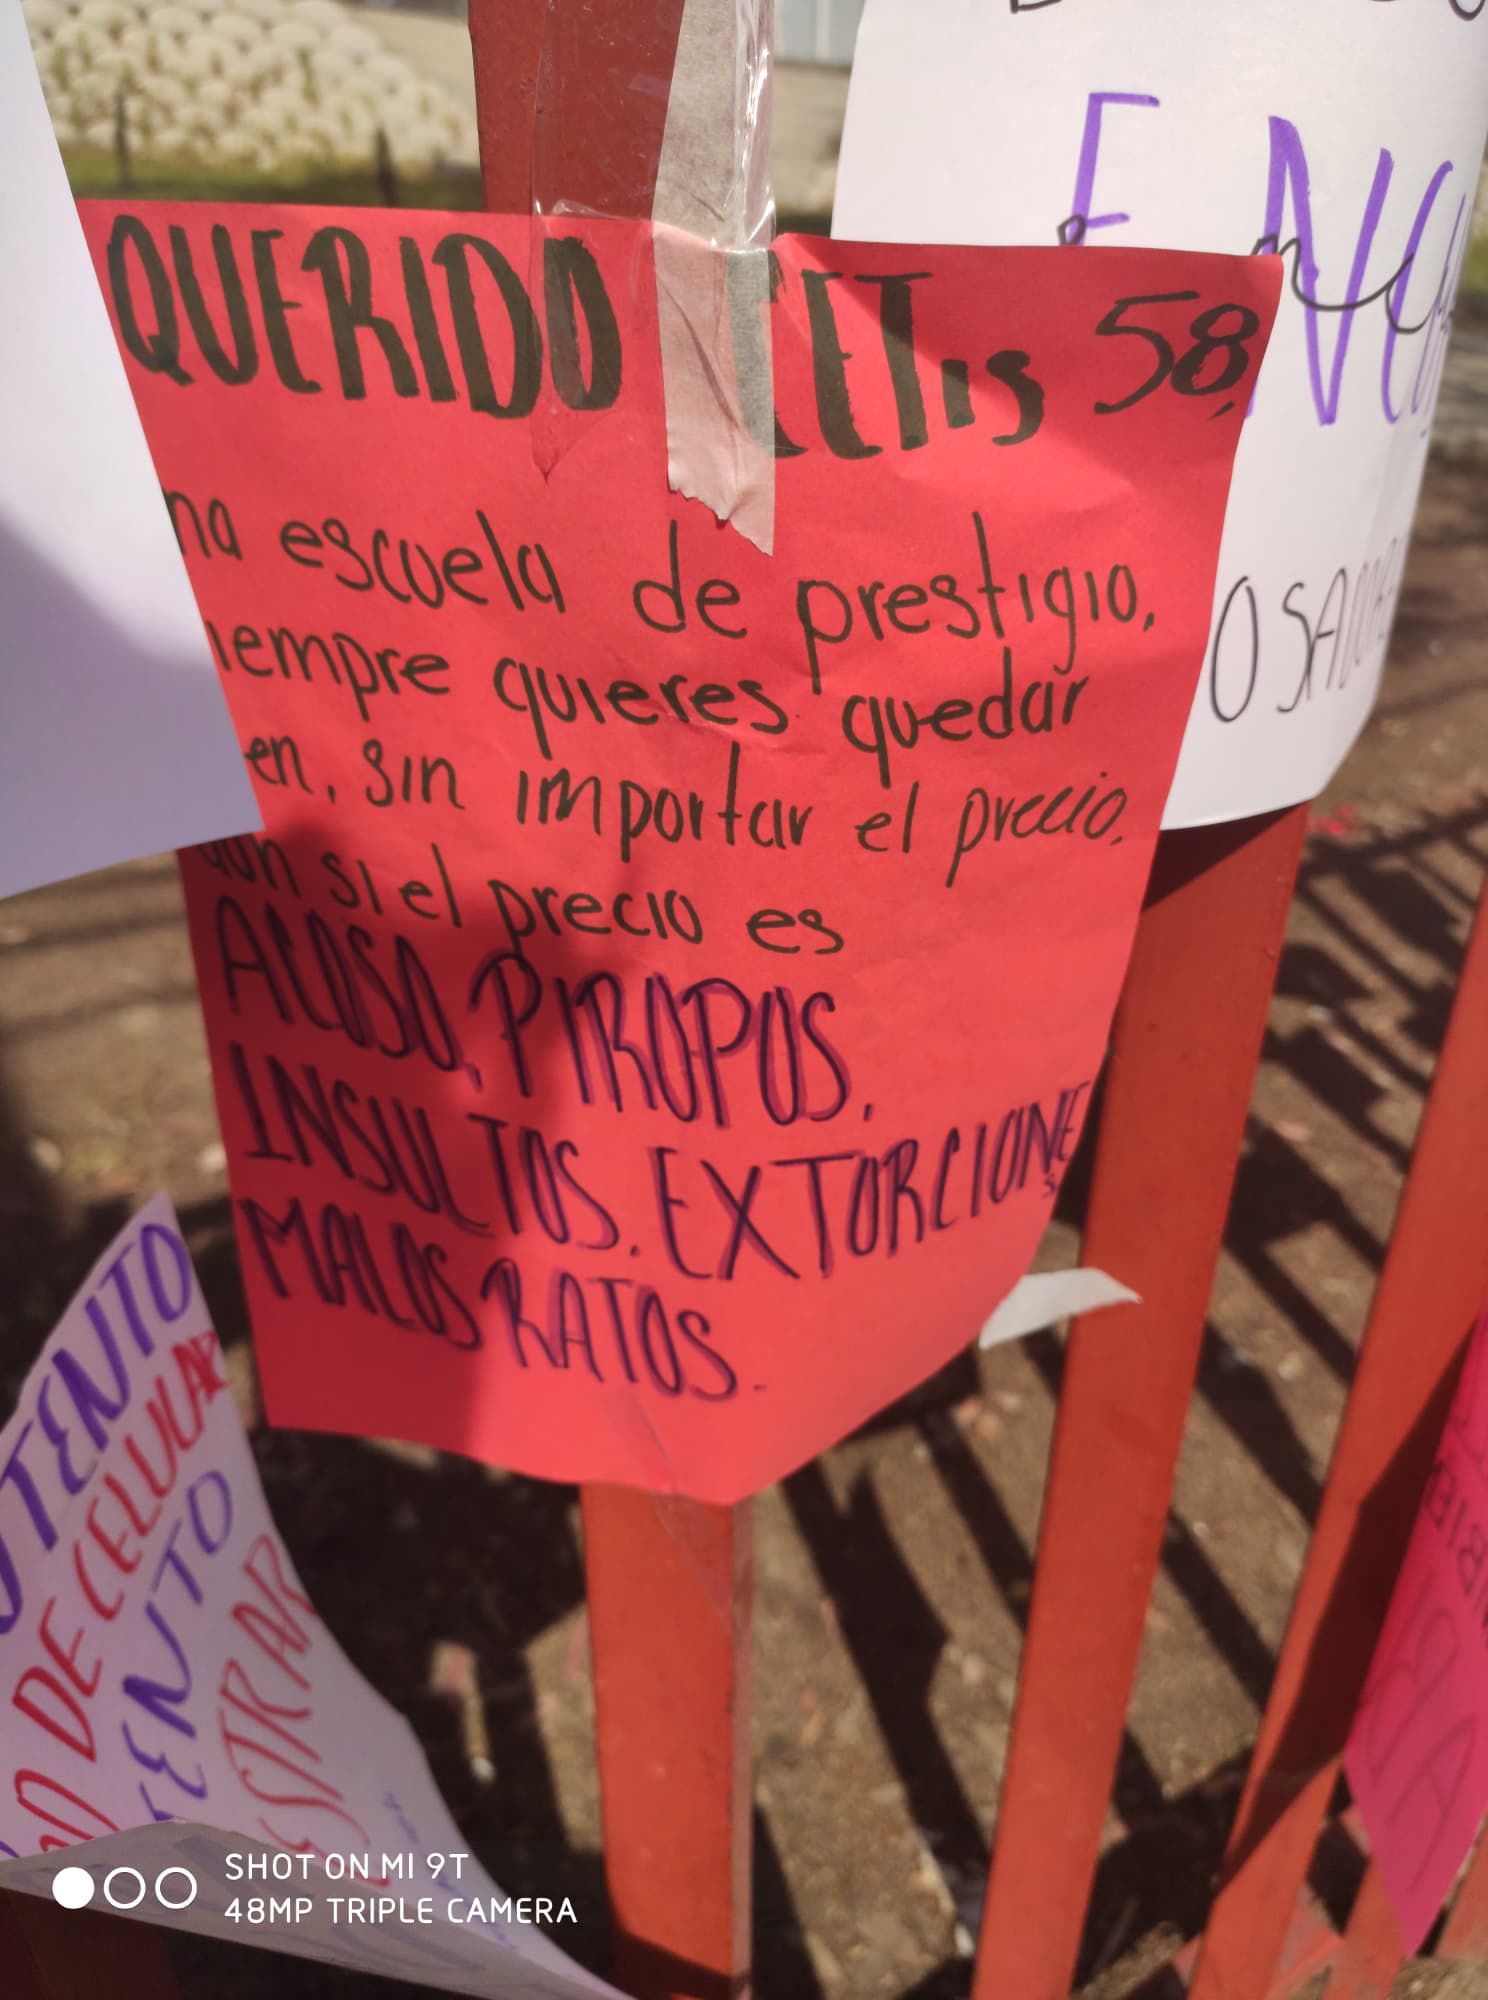 QUERIDO CETis 58,
na escuela de prestigio,
iempre quieres quedar
en, sin importar el precio,
aun si el precio es
ACOSO, PIROPOS,
INSULTOS, EXTORCIONES
MALOS RATOS.
ENC
O SA
TENTO
DE CELULAR
ENTO
ESTRAR
SHOT ON MI 9T
48MP TRIPLE CAMERA